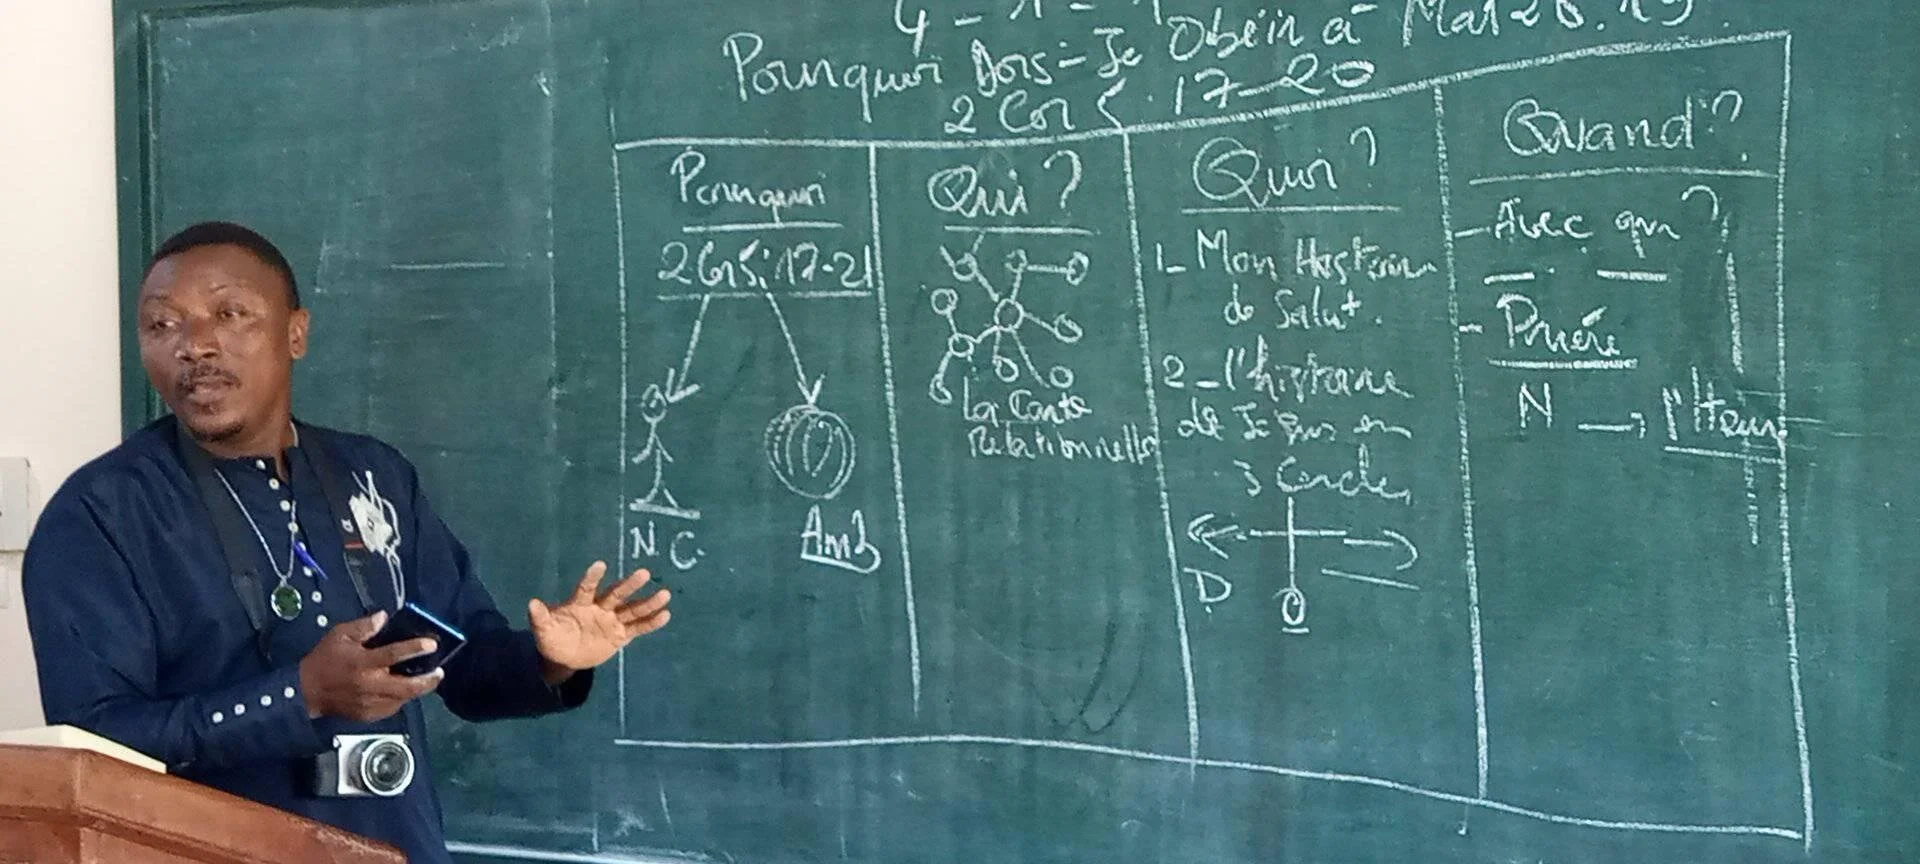 4 - 1 - 1
Pourquoi Dois-Je Obéir à Mat 28.19
2 Cor 5.17-20
Pourquoi
2 Cor 5:17-21
N.C.
Amb
Qui ?
La Carte
Relationnelle
Quoi ?
1- Mon Histoire
de Salut.
2- l'histoire
de Jésus en
3 Cercles
D
Quand ?
- Avec qui ?
- Prière
N → l'Heure